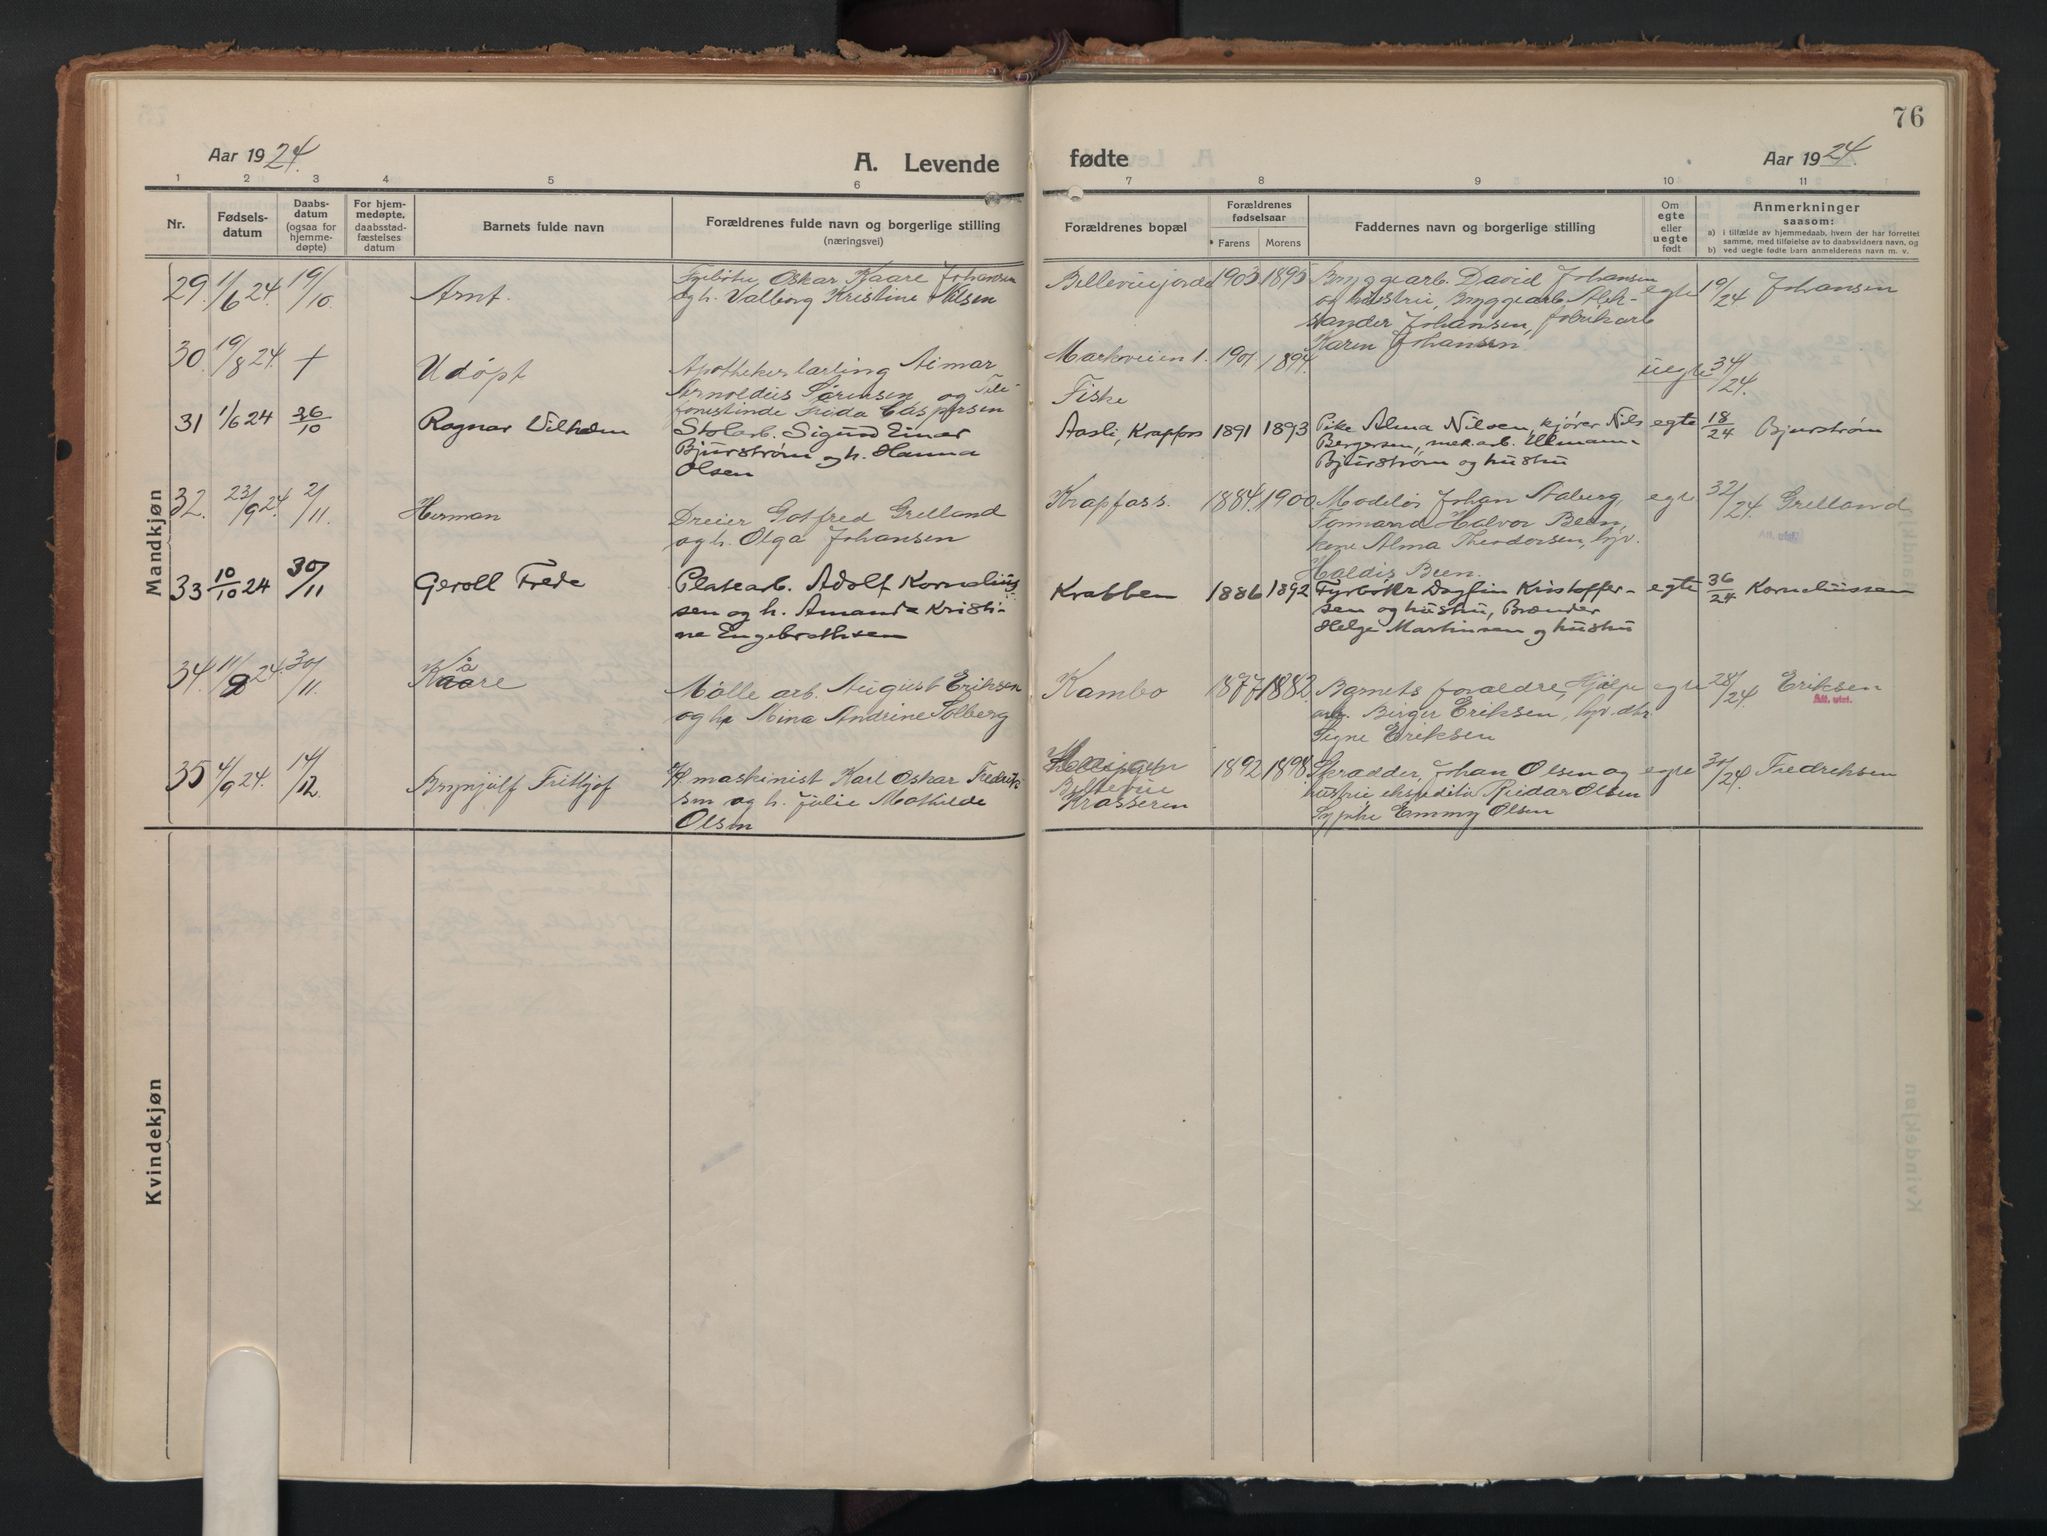 76
Aar 1924.
A. Levende
fødte
Aar 1924.
1 2 3 4 5 6
7 8 9 10 11
Nr.
Fødsels-
datum
Daabs-
datum
(ogsaa for
hjemme-
døpte)
For hjem-
medøpte,
daabsstad-
fæstelses
datum
Barnets fulde navn
Forældrenes fulde navn og borgerlige stilling
(næringsvei)
Forældrenes bopæl
Forældrenes
fødselsaar
Farens Morens
Faddernes navn og borgerlige stilling
Om
egte
eller
uegte
født
Anmerkninger
saasom:
a) i tilfælde av hjemmedaab, hvem der har forrettet
samme, med tilføielse av to daabsvidners navn, og
b) ved uegte fødte barn anmelderens navn m. v.
Mandkjøn
29. 1/6 24. 19/10. Arnt.
Fyrbøter Oskar Kaare Johansen
og h. Valborg Kristine Nilsen
1903 1895
Bryggearb. David Johansen
og hustru, Bryggearb. Alek-
sander Johansen, fabrikarb
Karen Johansen
egte 19/24 Johansen
30. 19/8 24. + Udøpt
Apothekerlærling Aimar
Arnoldus Sørensen og Tele-
fonistinde Frida Caspersen
Markveien 1.
Fiske
1901 1894.
uegte 34/24.
31 1/6 24 26/10 Ragnar Vilhelm
Stolarb. Sigurd Einar
Bjurstrøm og h. Hanna
Olsen
Aasli, Krapfoss 1891 1893
Pike Alma Nilsen, kjører Nils
Bergersen, mek. arb. Ullmann
Bjurstrøm og hustru
egte 18/24 Bjurstrøm
32. 23/9 24. 2/11. Herman
Dreier Gotfred Grelland
og h. Olga Johansen
Krapfoss. 1884. 1900
Modelør Johan Staberg,
Tømmermand Halvor Been,
kone Alma Theodorsen, hjv.
Haldis Been.
egte 32/24 Grelland
Att. utst.
33 10/10 24 30/11 Geroll Frede
Platearb. Adolf Kornelius-
sen og h. Amanda Kristi-
ne Engebrethsen
Krabben 1886 1892
Fyrbøter Dagfin Kristoffer-
sen og hustru, Brænder
Helge Martinsen og hustru
egte 36/24 Korneliussen
34. 11/9 24. 30/11. Kåre
Mølle arb. August Eriksen
og h Mina Andrine Solberg
Kambo 1877. 1882.
Barnets forældre, Hjælpe
arb. Birger Eriksen, hjv. dtr.
Signe Eriksen
egte 28/24. Eriksen
Att. utst.
35 4/9 24. 14/12. Brynjulf Frithjof
maskinist Karl Oskar Fredrik-
sen og h. Julie Mathilde
Olsen
Bellevue
Krasseren
1892 1898.
Skrædder Johan Olsen og
hustru ekspeditør Reidar Olsen
Sypike Emmy Olsen
egte 30/24. Fredriksen
Kvindekjøn